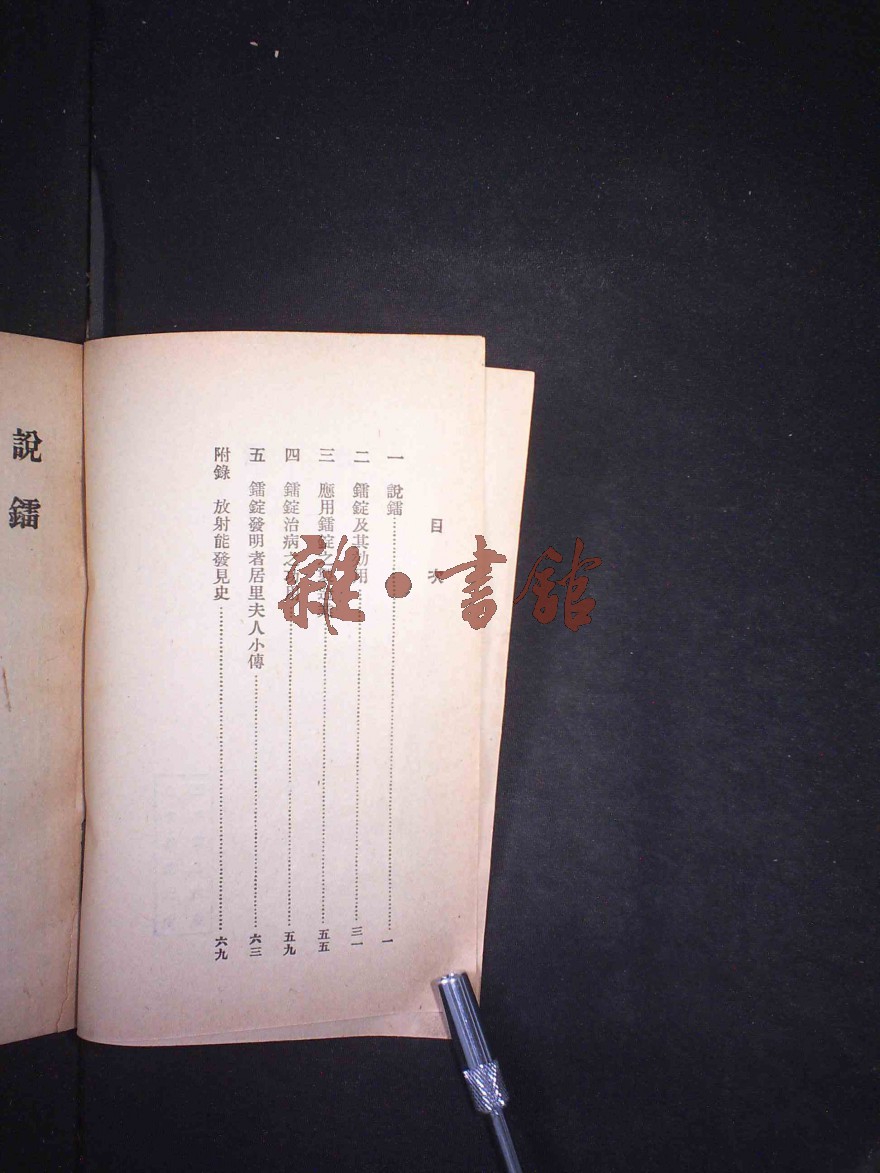 目次
一 說鐳 一
二 鐳錠及其功用 三一
三 應用鐳錠之 五五
四 鐳錠治病之 五九
五 鐳錠發明者居里夫人小傳 六三
附錄 放射能發見史 六九
說鐳
雜·書館